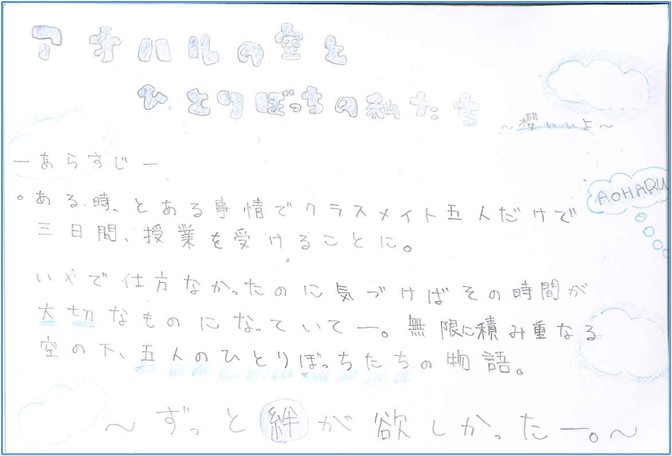 アオハルの空と
ひとりぼっちの私たち
～櫻いいよ～
ーあらすじー
。ある時、とある事情でクラスメイト五人だけで
三日間、授業を受けることに。
AOHARU
いやで仕方なかったのに気づけばその時間が
大切なものになっていてー。無限に積み重なる
空の下、五人のひとりぼっちたちの物語。
～ずっと絆が欲しかったー。～